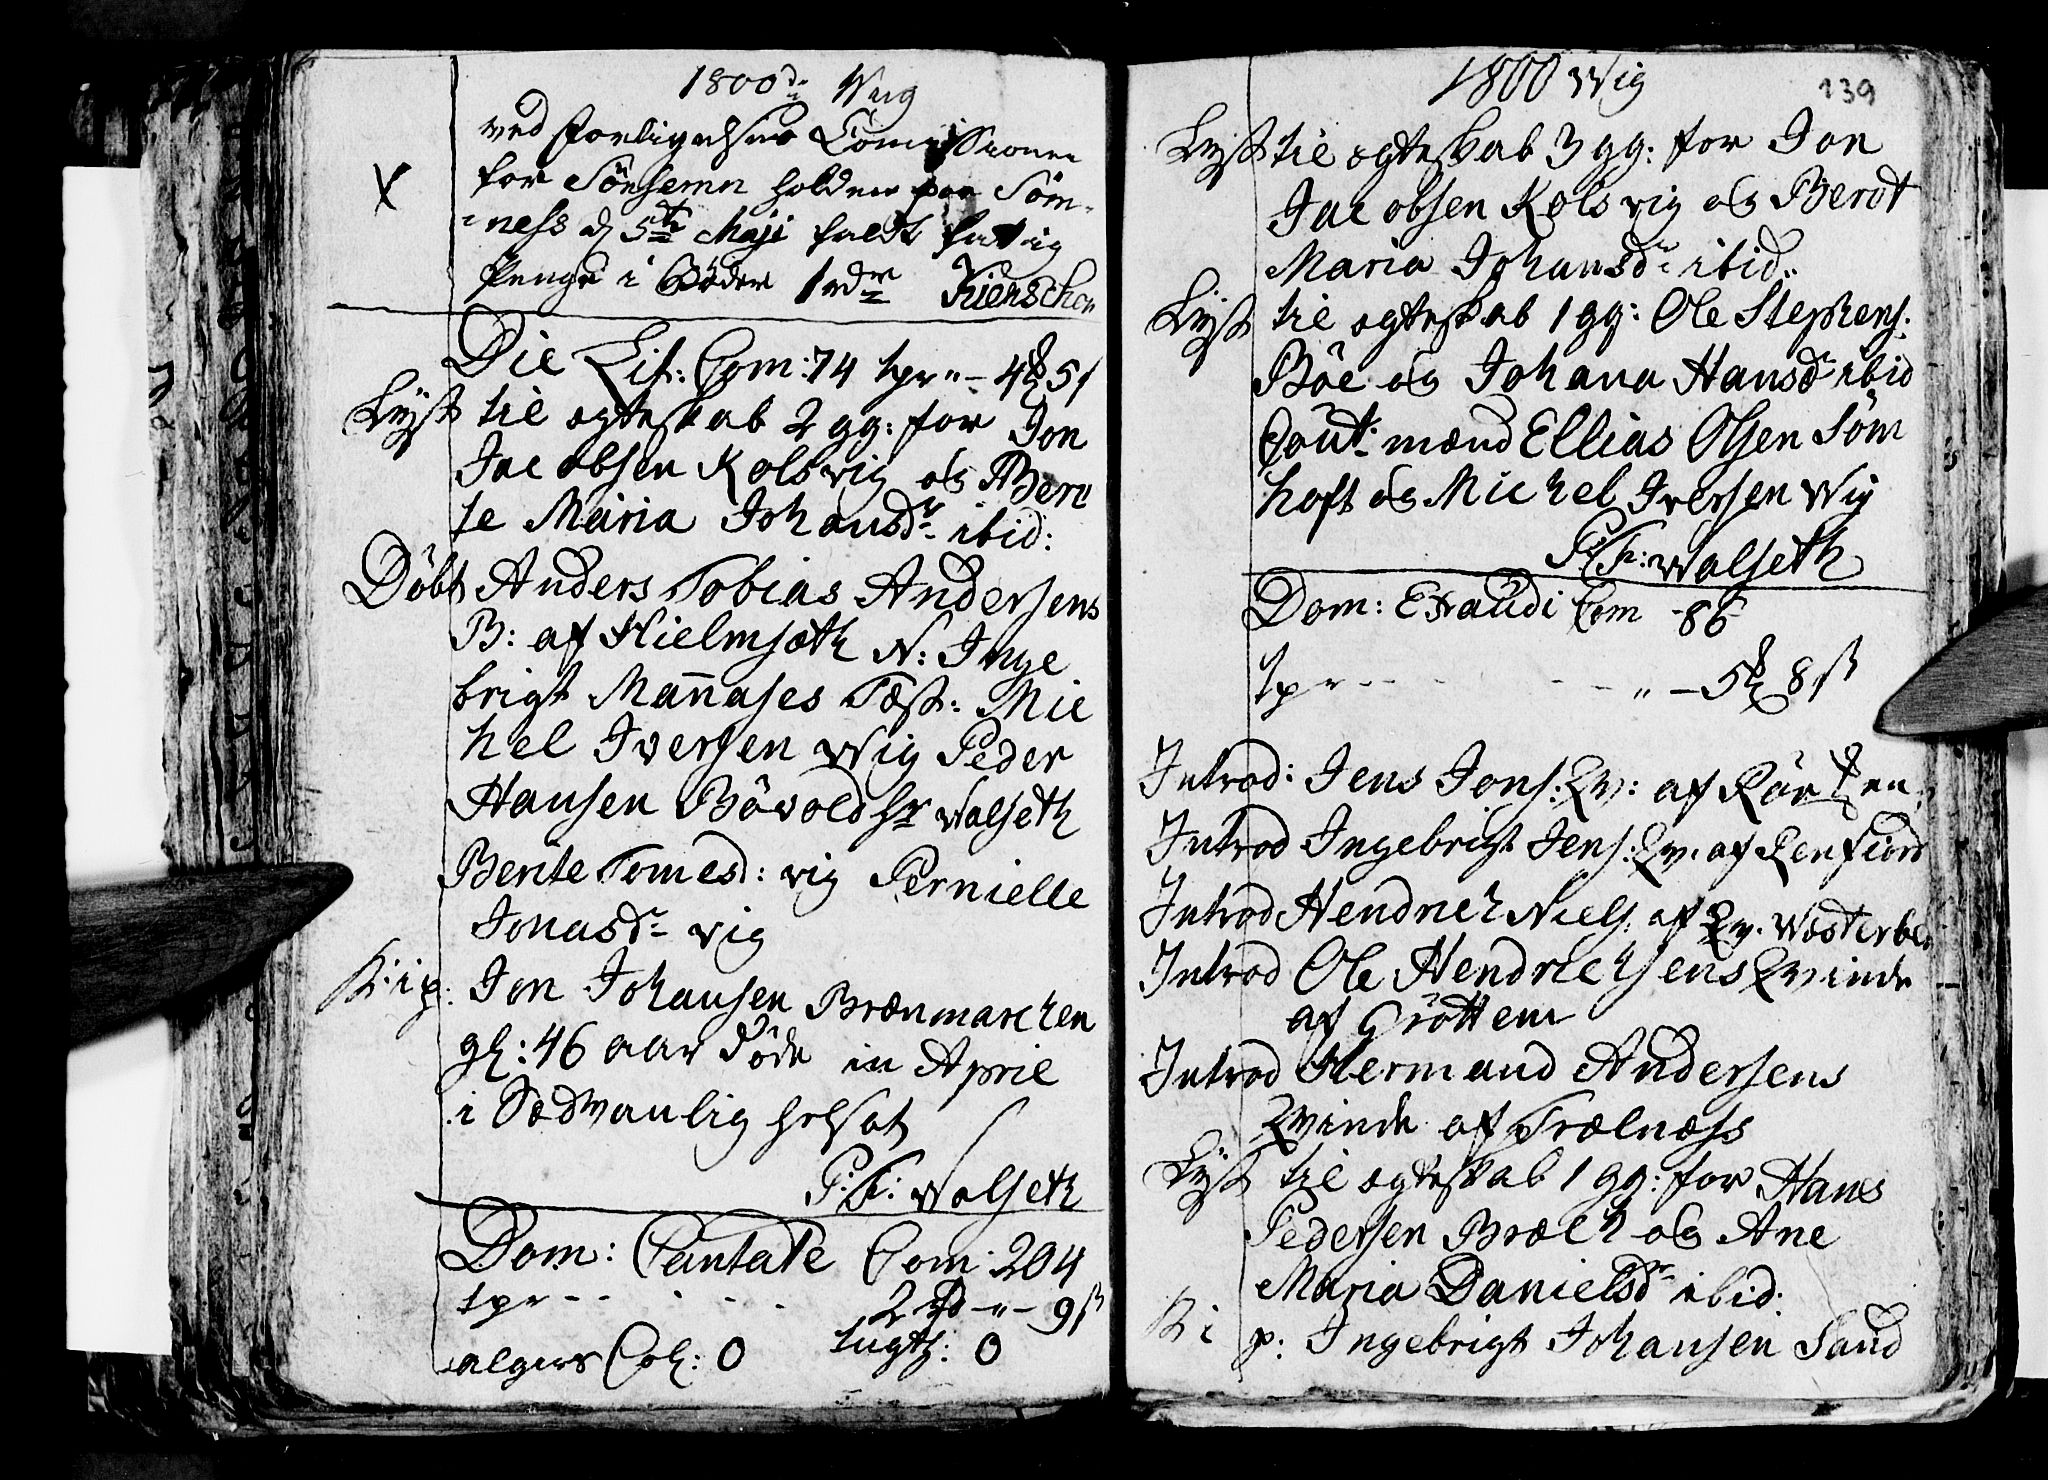 1800de Wiig
ved Forligelses Comissionen
for Sönhemn holden paa Söm-
ness d 5te Maji faldt fattig
Penge i Bøder 1 rdr Kierschow
Die Lit: Com: 74 tpr „ - 4 ₰ 5 s
Lyst til egteskab 2 gg: for Jon
Jacobsen Kolsvig og Beru
te Maria Johansdr ibid:
Döbt Anders Tobias Andersens
B: af Hielmsæth N: Inge
brigt Mannases Tæst: Mic
hel Iversen Wig Peder
Hansen Bövold hr Walseth
Berite Tomesd: vig Pernielle
Jonasdr vig
K: i p: Jon Johansen Brænmarchen
gl: 46 aar döde in April
i Sædvanlig helsot
P: F: Walseth
Dom: Cantate Com: 204
tpr - - - - - 2 rd - „ - 9 s
algiers Col: 0 tugth: 0
1800 Wig 139
Lyst til egteskab 3 gg: for Jon
Jacobsen Kolsvig og Berot
Maria Johansdr ibid:
Lyst til egteskab 1 gg: Ole Stephens:
Böe og Johana Hansdr ibid
Caut: mænd Ellias Olsen Söm
hoft og Michel Iversen Wig
P: F: Walseth
Dom: Exaudi Com - 86
tpr - - - - - - „ - 5 ₰ 8 s
Introd: Jens Jons: Qv: af Rör en
Introd Ingebrigt Jens: Qv. af Renfiord
Introd Hendrich Niels: af Qv. Wæsterbe
Introd Ole Hendrichsens Qvinde
af Gröttem
Introd Hermand Andersens
Qvinde af Trælnæss
Lyst til egteskab 1 gg: for Hans
Pedersen Bræch og Ane
Maria Danielsdr ibid:
K i p: Ingebrigt Johansen Sand